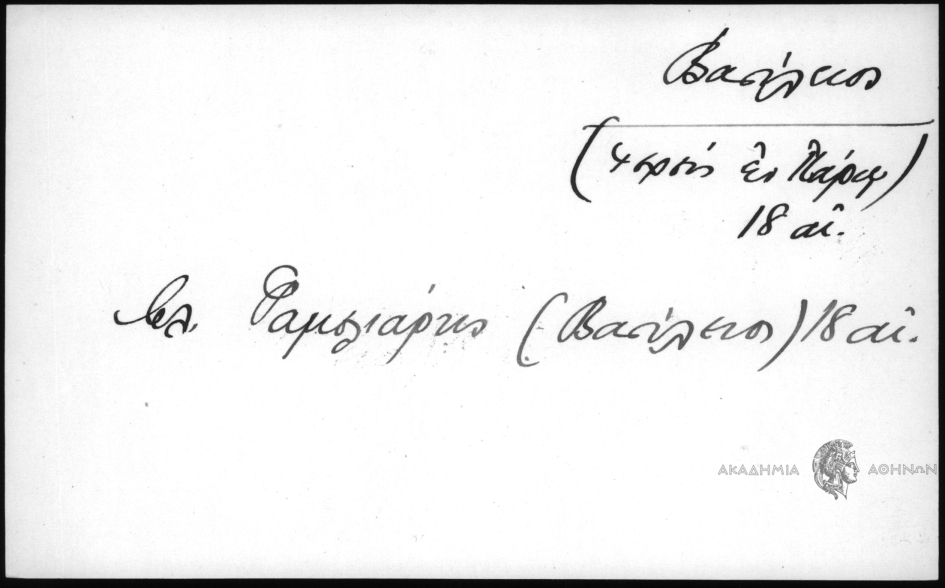 Βασίλειος
(ἐν Πάρῳ)
18 αἰ.
Βλ. (Βασίλειος) 18 αἰ.
ΑΚΑΔΗΜΙΑ ΑΘΗΝΩΝ